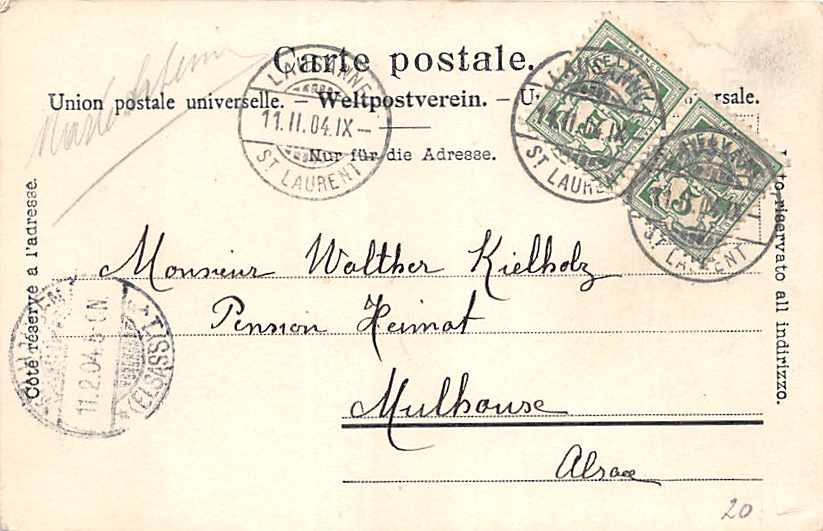 Carte postale.
Union postale universelle. – Weltpostverein. –
Nur für die Adresse.
Côté réservé a l'adresse.
riservato all indirizzo.
LAUSANNE
11.II.04.IX–
ST LAURENT
LAUSANNE
11.II.04.IX
ST LAURENT
ST LAURENT
HELVETIA
FRANCO
5
5
Monsieur Walther Kielholz
Pension Heimat
Mulhouse
Alsace
11.2.04.
(ELSASS)
20